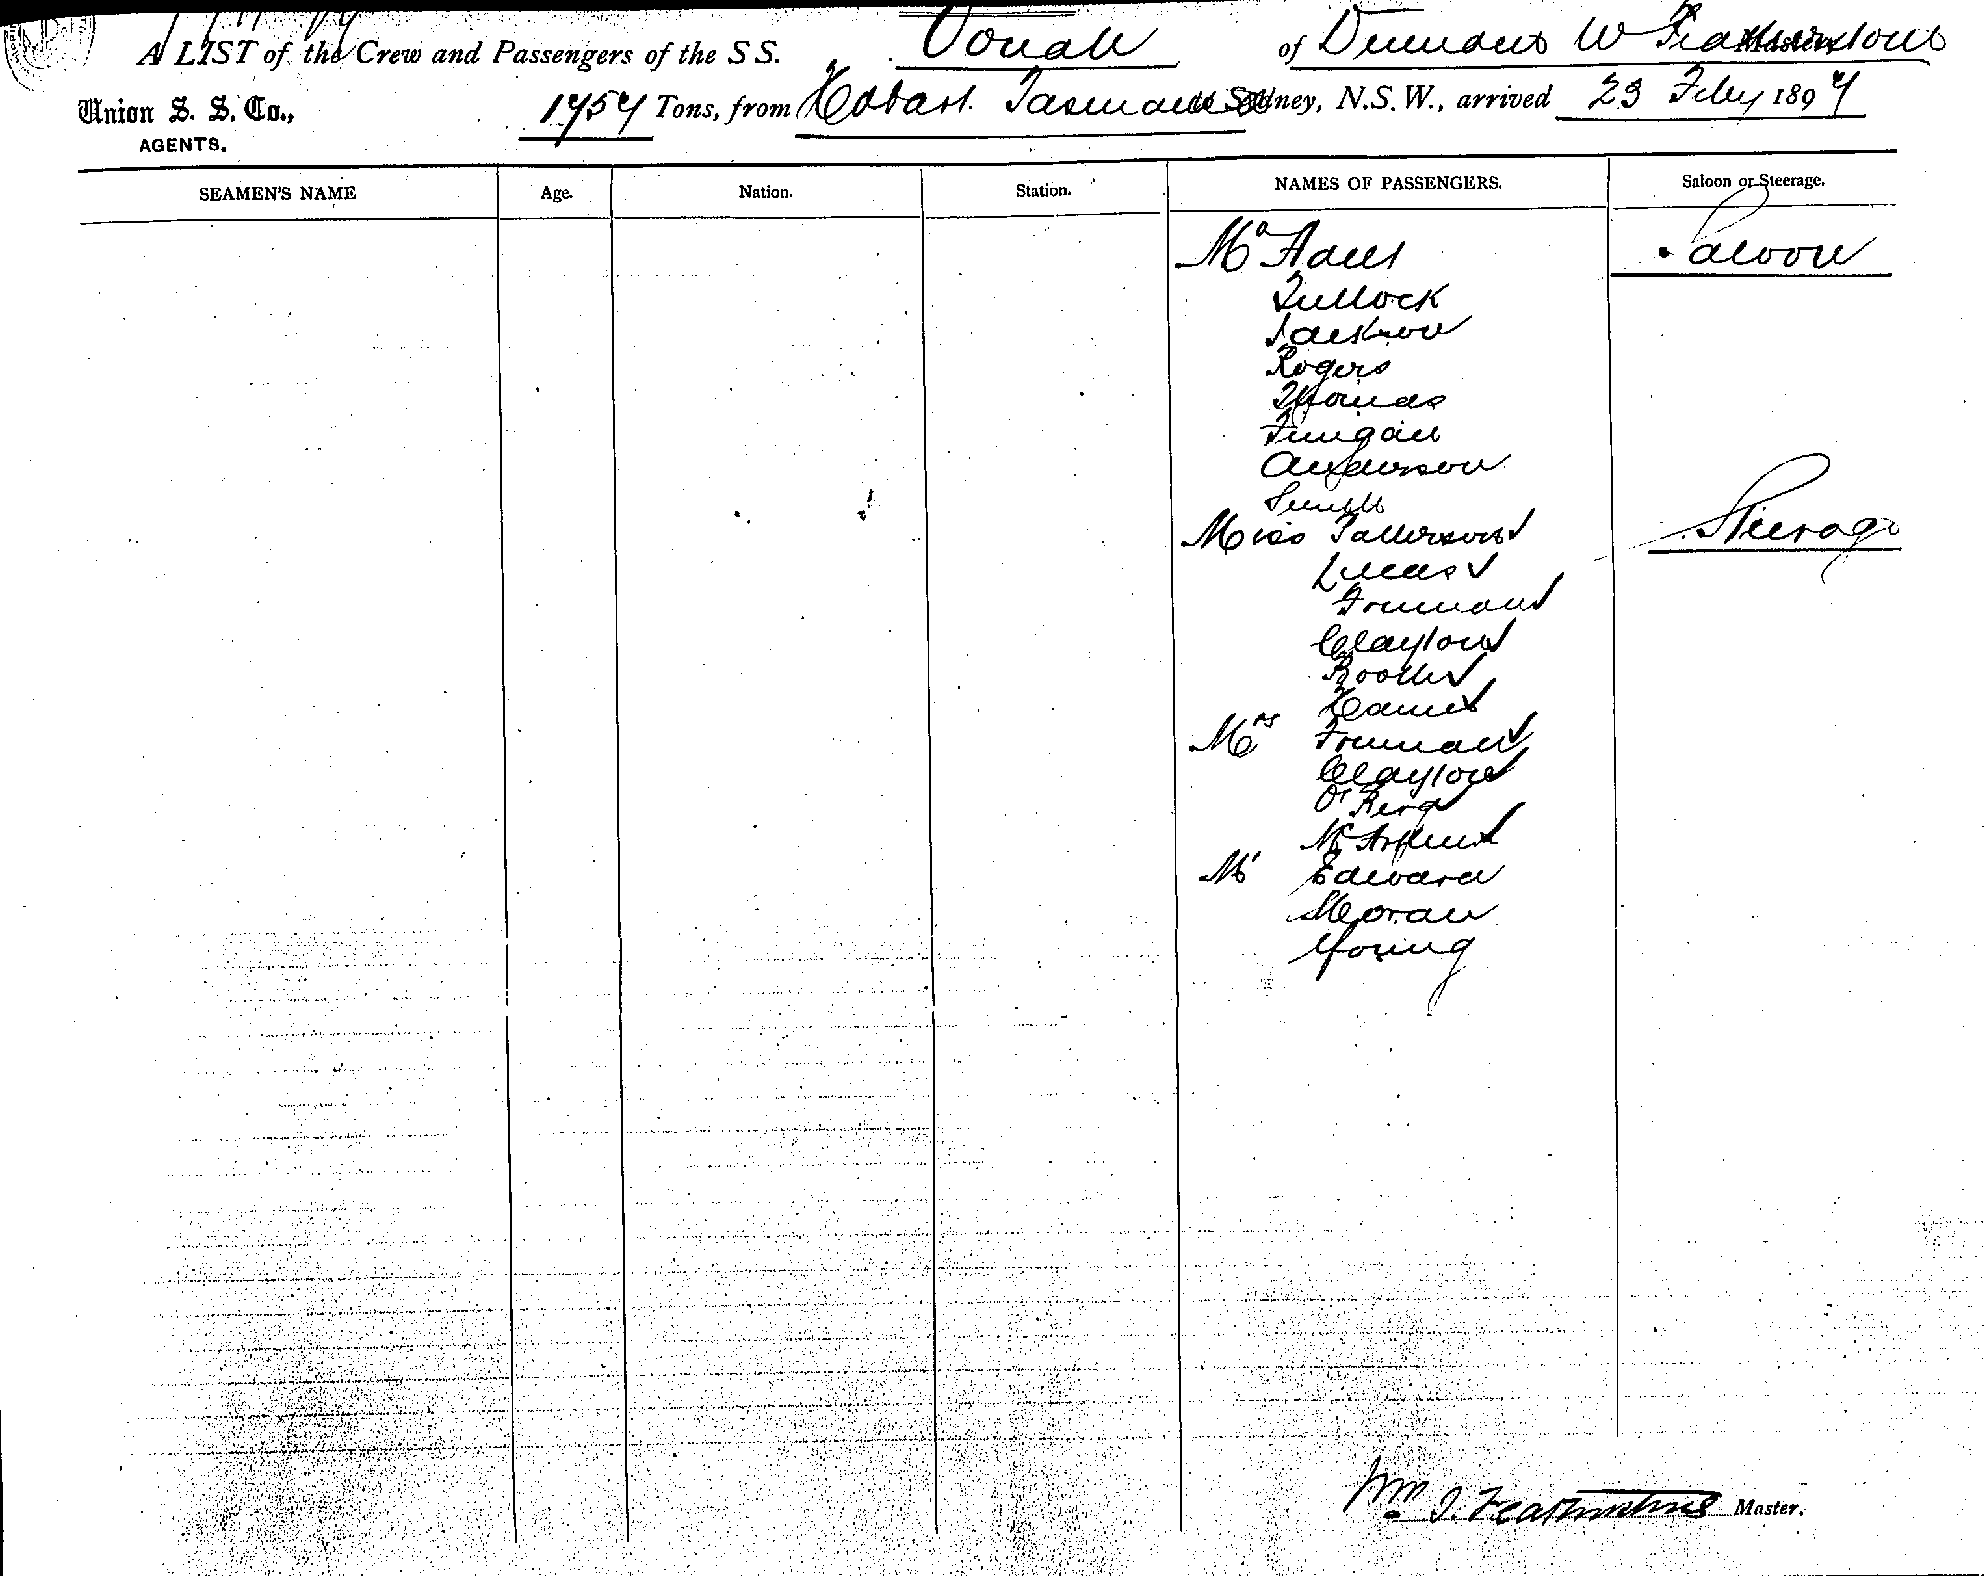 A LIST of the Crew and Passengers of the S S. Oonah of W Featherstone
Union S. S. Co., 1757 Tons, from Hobart Tasmania to Sydney, N.S.W., arrived 23 Feby 1897
AGENTS.
SEAMEN'S NAME Age. Nation. Station. NAMES OF PASSENGERS. Saloon or Steerage.
Mr Saloon
Tullock
Jackson
Rogers
Thomas
Finigan
Anderson
Smith
Miss Patterson Steerage
Lucas
Freeman
Clayton
Booth
Mrs Freeman
Clayton
McArthur
Mr Edward
Moran
Young
Wm J. Featherstone Master.